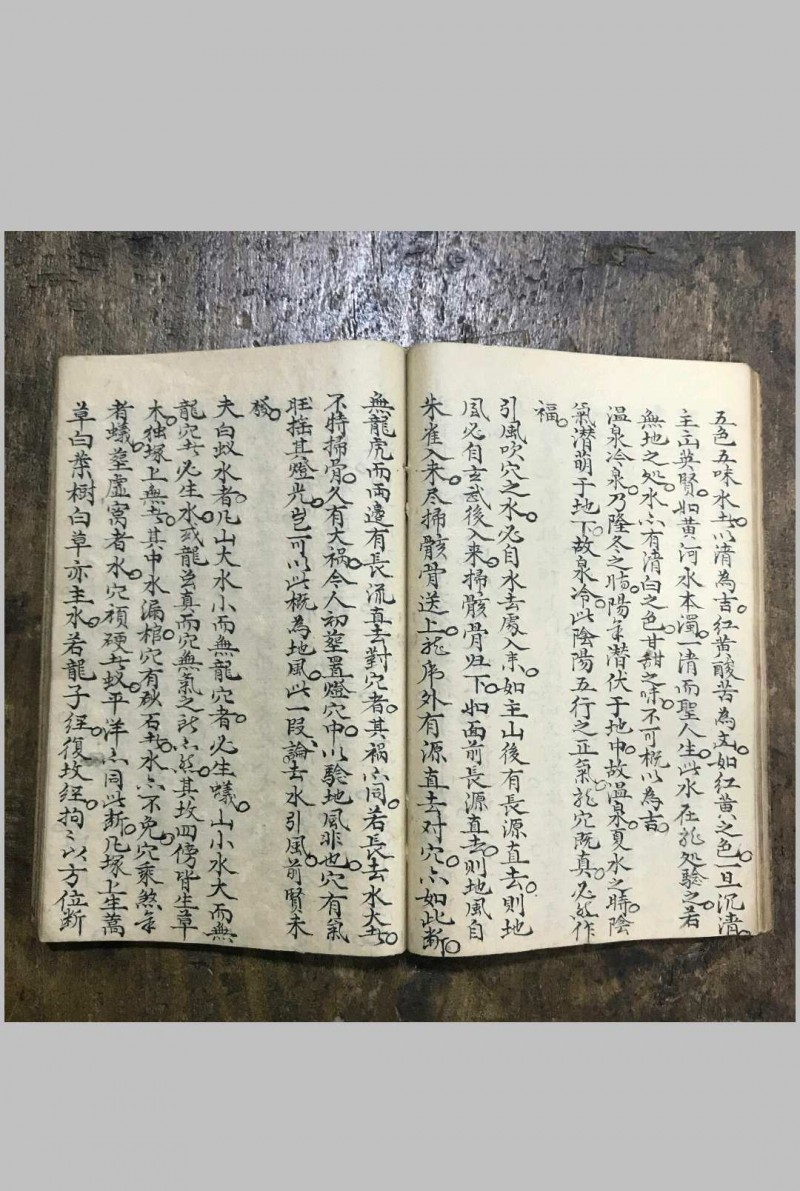 五色五味水者以清為吉紅黃酸苦為凶如紅黃之色一旦沉清
主出英賢如黃河水本濁一清而聖人生此水在龍処驗之若
無地之処水亦有清白之色甘甜之味不可概以為吉
温泉冷泉乃隆冬之時陽氣潛伏于地中故温泉夏水之時陰
氣潛萌于地下故泉冷此陰陽五行之正氣龍穴既真必然作
福
引風吹穴之水必自水去處入來如主山後有長源直去則地
風必自玄武後入來掃骸骨归下如面前長源直去則地風自
朱雀入來尽掃骸骨送上龍虎外有源直去对穴亦如此断
無龍虎而両邉有長流直去對穴者其禍亦同若長去水大者
不特掃骨久有大禍今人初塟置燈穴中以驗地風非也穴有氣
旺搖其燈光豈可以此概為地風此一段論去水引風前賢未
發
夫白蚁水者凡山大水小而無龍穴者必生蟻山小水大而無
龍穴者必生水或龍岂真而穴無氣之所亦然其坟四傍皆生草
木独塚上無者其中水漏棺穴有砂石者水亦不免穴乘煞氣
者蟻塟虛窩者水穴頑硬者蚁平洋亦同此断凡塚上生蒿
草白葉樹白草亦主水若龍子経復坟経拘〻以方位断